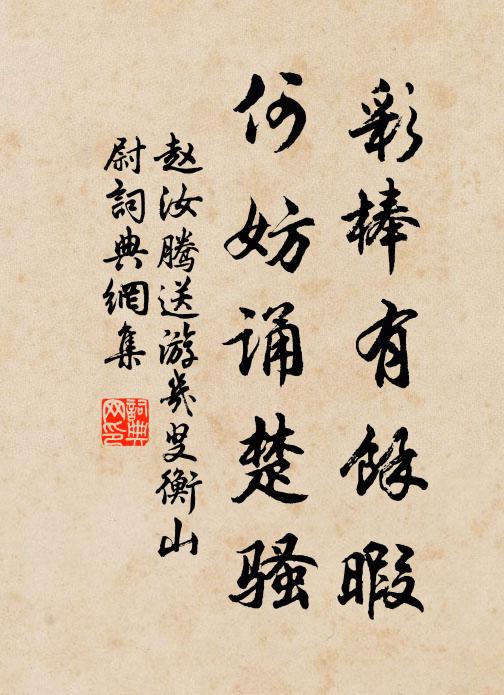 彩棒有餘暇
何妨诵楚骚
赵汝腾送游几叟衡山
尉詞典網集
詞典
网印